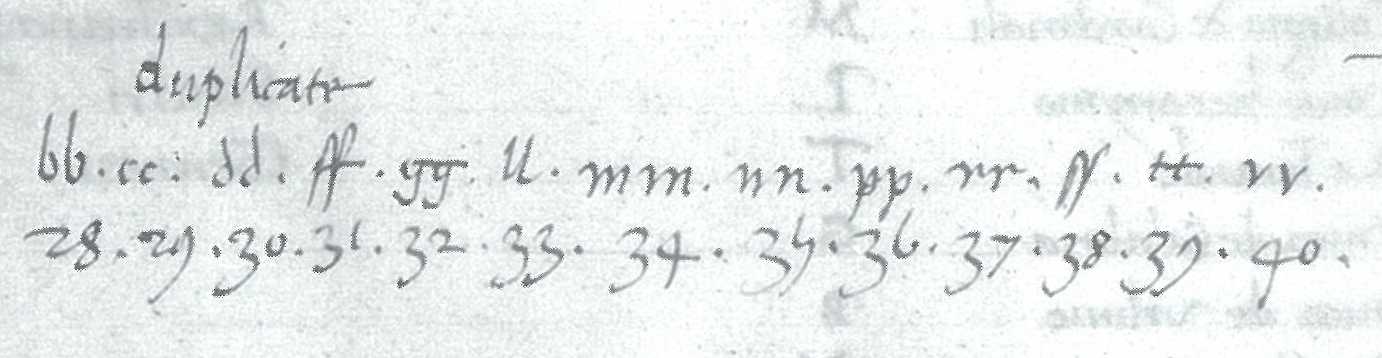 duplicate
bb. cc. dd. ff. gg. ll. mm. nn. pp. rr. ſſ. tt. vv.
28. 29. 30. 31. 32. 33. 34. 35. 36. 37. 38. 39. 40.